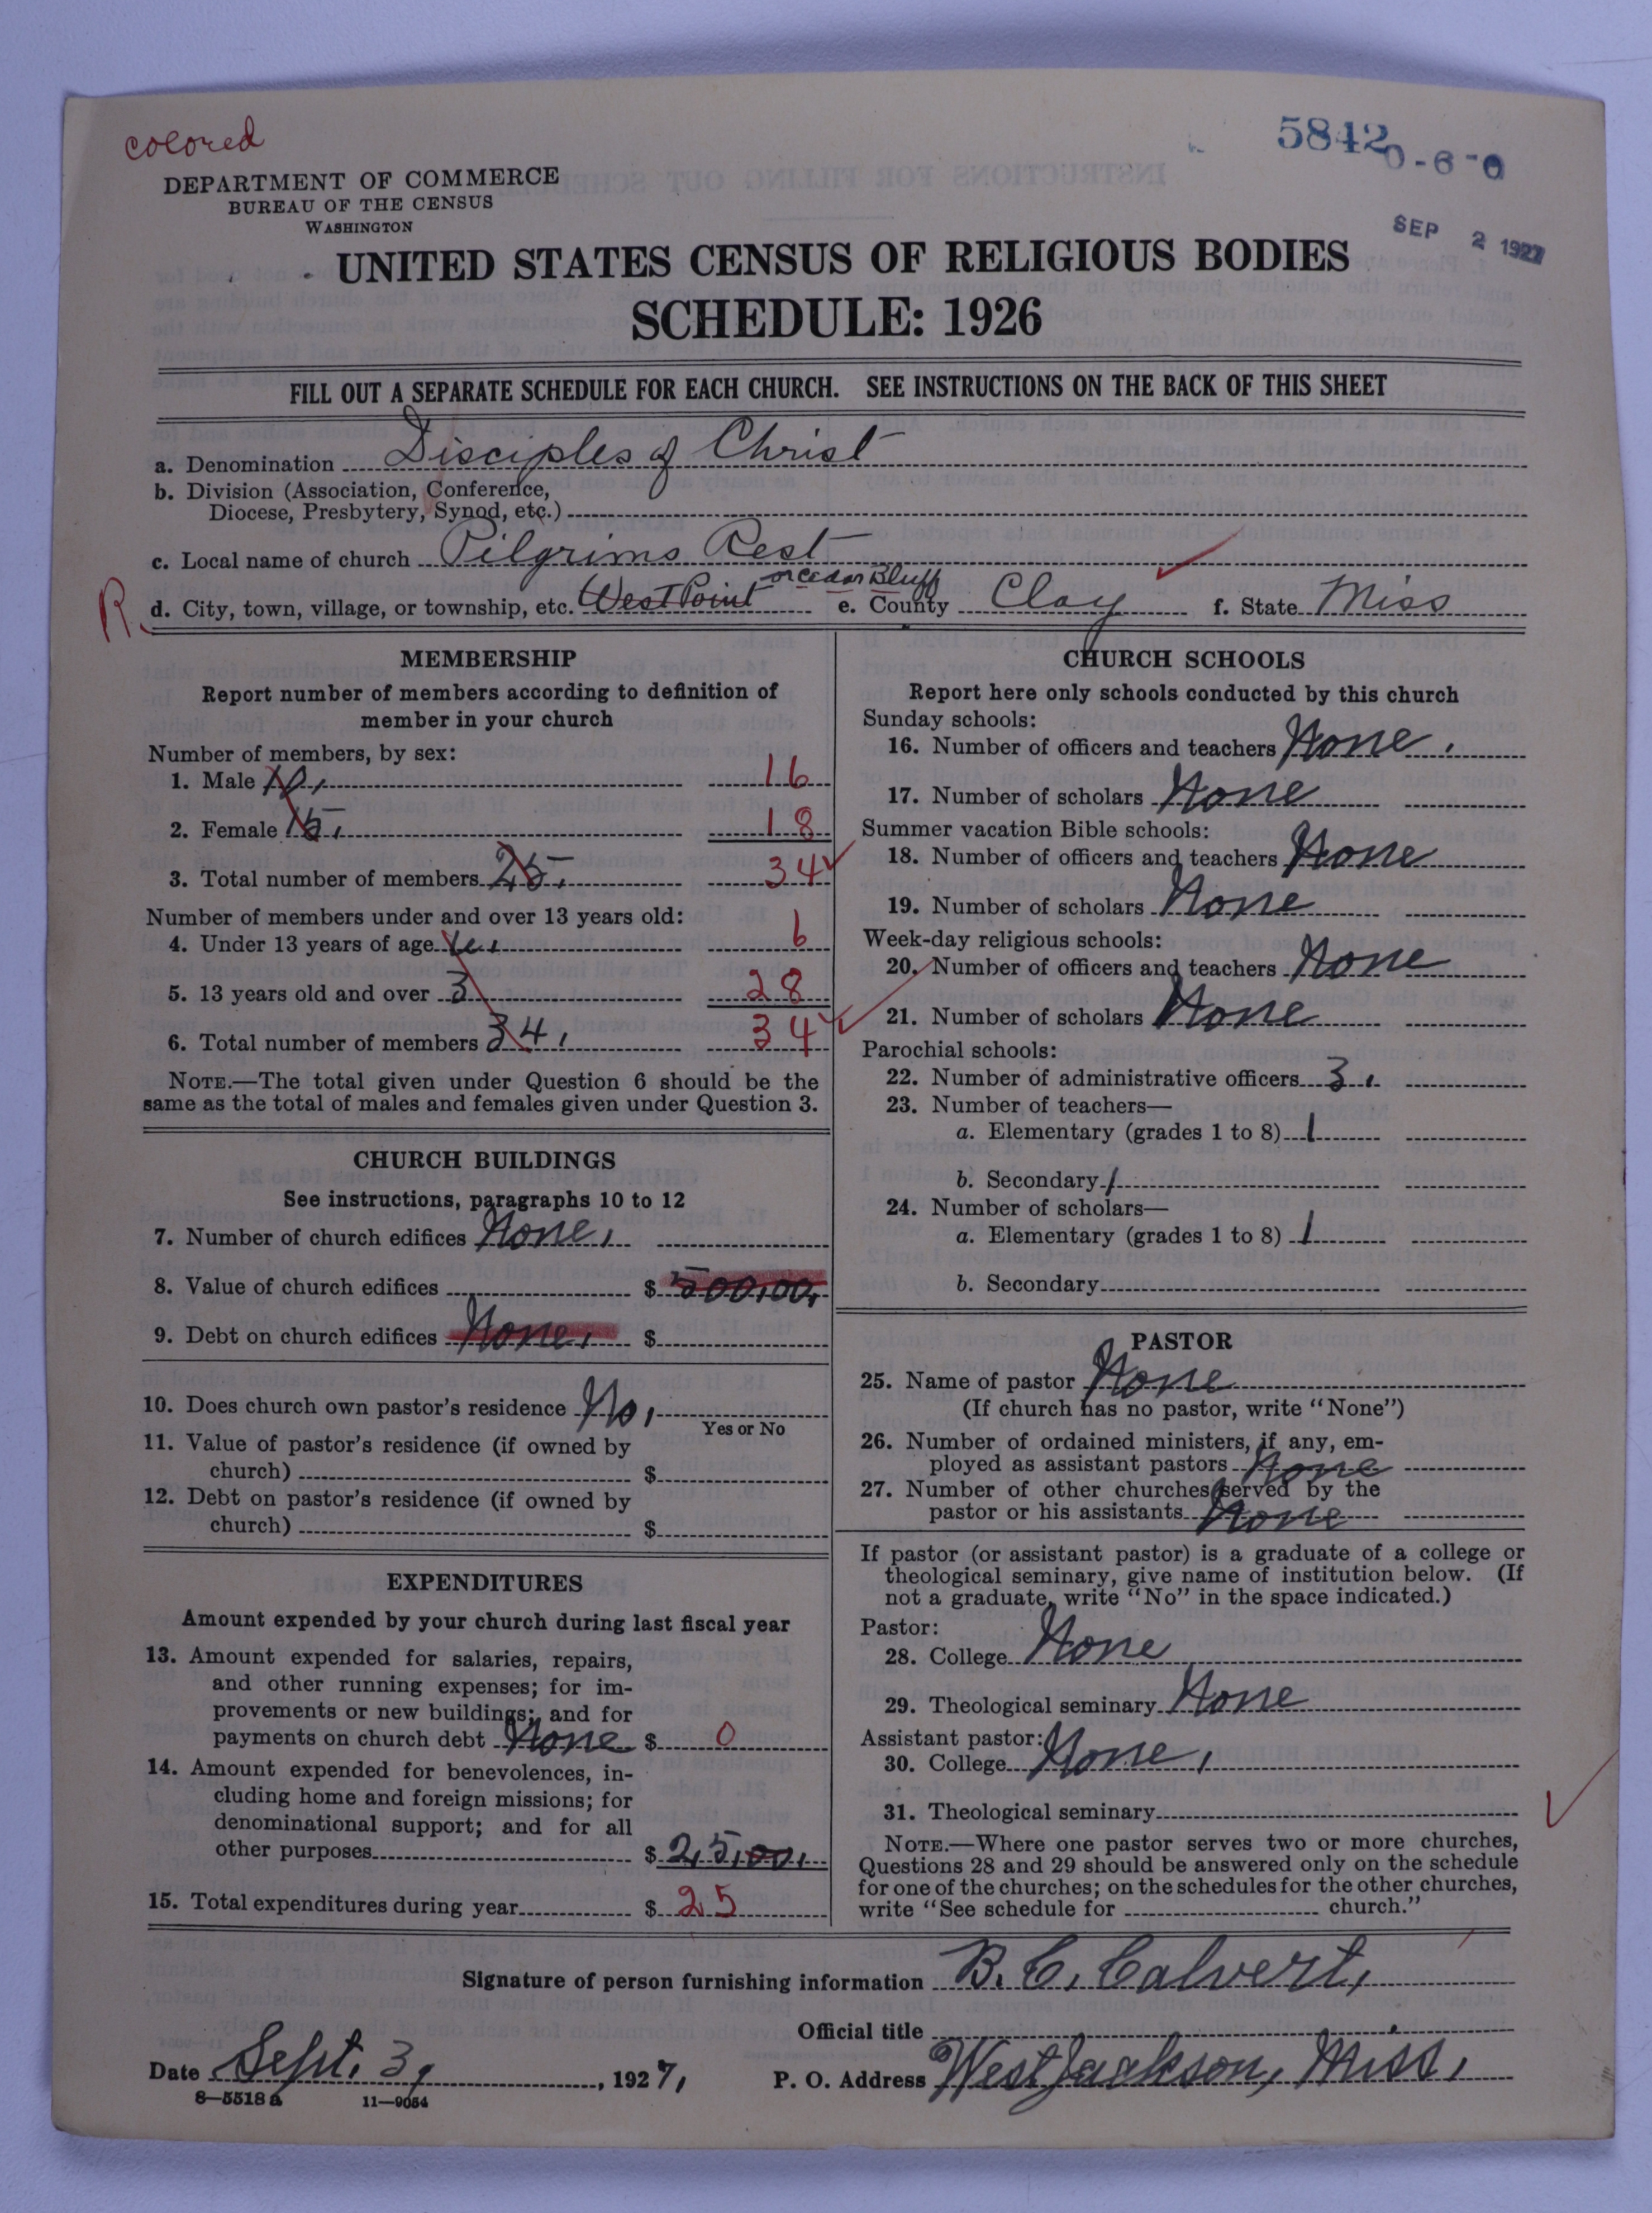 colored
5842
0-6-0
DEPARTMENT OF COMMERCE
BUREAU OF THE CENSUS
WASHINGTON
SEP 2 1927
UNITED STATES CENSUS OF RELIGIOUS BODIES
SCHEDULE: 1926
FILL OUT A SEPARATE SCHEDULE FOR EACH CHURCH. SEE INSTRUCTIONS ON THE BACK OF THIS SHEET
a. Denomination Disciples of Christ
b. Division (Association, Conference,
Diocese, Presbytery, Synod, etc.)
c. Local name of church Pilgrims Rest
R. d. City, town, village, or township, etc. West Point or Cedar Bluff e. County Clay f. State Miss
MEMBERSHIP
Report number of members according to definition of
member in your church
Number of members, by sex:
1. Male 10, 16
2. Female 15, 18
3. Total number of members 25. 34
Number of members under and over 13 years old:
4. Under 13 years of age 6
5. 13 years old and over 3 28
6. Total number of members 34, 34
NOTE.—The total given under Question 6 should be the
same as the total of males and females given under Question 3.
CHURCH BUILDINGS
See instructions, paragraphs 10 to 12
7. Number of church edifices None,
8. Value of church edifices $ 500,00,
9. Debt on church edifices None, $
10. Does church own pastor's residence No,
Yes or No
11. Value of pastor's residence (if owned by
church) $
12. Debt on pastor's residence (if owned by
church) $
EXPENDITURES
Amount expended by your church during last fiscal year
13. Amount expended for salaries, repairs,
and other running expenses; for im-
provements or new buildings; and for
payments on church debt None $ 0
14. Amount expended for benevolences, in-
cluding home and foreign missions; for
denominational support; and for all
other purposes $ 25,00,
15. Total expenditures during year $ 25
CHURCH SCHOOLS
Report here only schools conducted by this church
Sunday schools:
16. Number of officers and teachers None.
17. Number of scholars None
Summer vacation Bible schools:
18. Number of officers and teachers None
19. Number of scholars None
Week-day religious schools:
20. Number of officers and teachers None
21. Number of scholars None
Parochial schools:
22. Number of administrative officers 3.
23. Number of teachers—
a. Elementary (grades 1 to 8) 1
b. Secondary 1
24. Number of scholars—
a. Elementary (grades 1 to 8) 1
b. Secondary
PASTOR
25. Name of pastor None
(If church has no pastor, write "None")
26. Number of ordained ministers, if any, em-
ployed as assistant pastors None
27. Number of other churches served by the
pastor or his assistants None
If pastor (or assistant pastor) is a graduate of a college or
theological seminary, give name of institution below. (If
not a graduate, write "No" in the space indicated.)
Pastor:
28. College None
29. Theological seminary None
Assistant pastor:
30. College None,
31. Theological seminary
NOTE.—Where one pastor serves two or more churches,
Questions 28 and 29 should be answered only on the schedule
for one of the churches; on the schedules for the other churches,
write "See schedule for church."
Signature of person furnishing information B. C. Calvert,
Official title
Date Sept. 3, 1927, P. O. Address West Jackson, Miss,
8—5518 a 11—9054